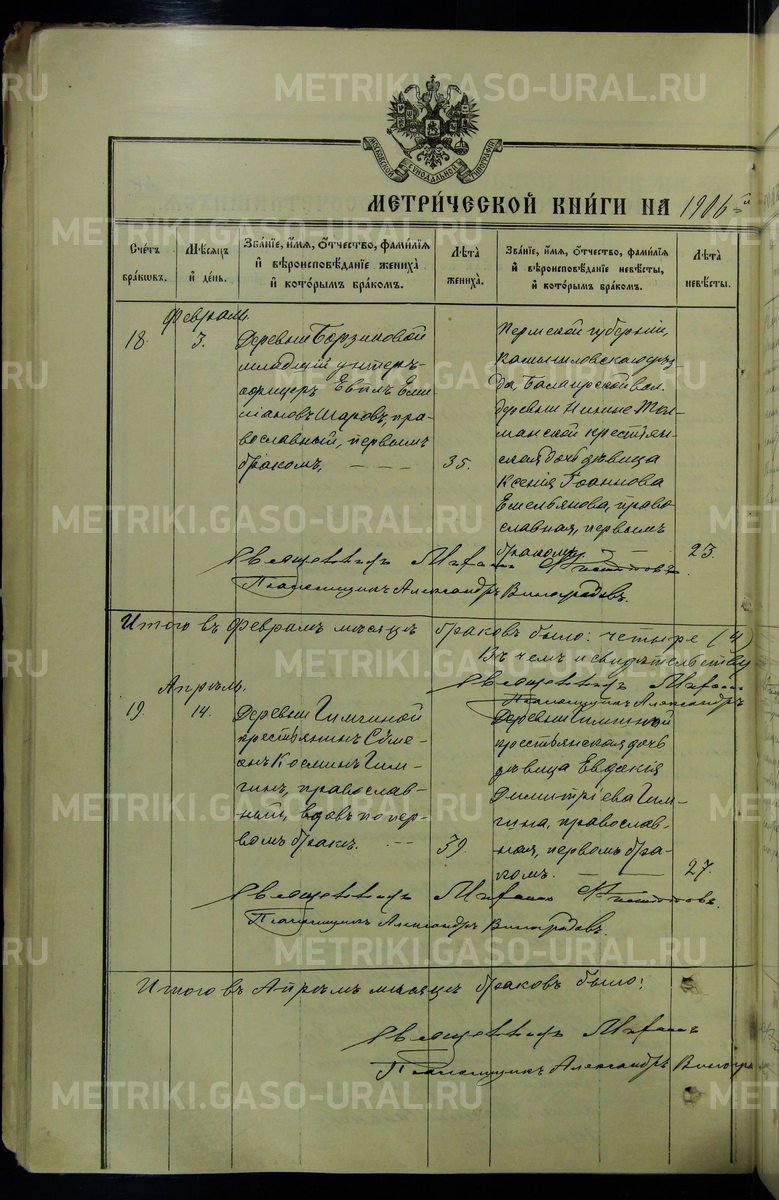 METRIKI.GASO-URAL.RU
МОСКОВСКОЙ СѴНОДАЛЬНОЙ ТИПОГРАФІИ
МЕТРИ́ЧЕСКОЙ КНИ́ГИ НА 1906 й
Сче́тъ бра́кѡвъ.
Мѣ́сяцъ и҆ де́нь.
Зва́нїе, и҆́мѧ, ѻ҆́тчество, фами́лїѧ и҆ вѣроисповѣ́данїе жениха̀ и҆ кото́рымъ бра́комъ.
Лѣ́та жениха̀.
Зва́нїе, и҆́мѧ, ѻ҆́тчество, фами́лїѧ и҆ вѣроисповѣ́данїе невѣ́сты, и҆ кото́рымъ бра́комъ.
Лѣ́та невѣ́сты.
Февраль.
18.
3.
Деревни Борзиковой
младшій унтеръ-
офицеръ Евплъ Еми-
ліановъ Шаровъ, пра-
вославный, первымъ
бракомъ.
35.
Пермской губерніи,
Камышловскаго уѣз-
да, Балаирской вол.
деревни
крестьян-
ская дочь дѣвица
Ксенія Іоаннова
Емельянова, право-
славная, первымъ
бракомъ.
23.
Священникъ
Псаломщикъ Александръ Виноградовъ.
Итого въ Февралѣ мѣсяцѣ браковъ было: четыре (4)
Въ чемъ и свидѣтельству
Священникъ
Псаломщикъ Александръ
Апрѣль.
19.
14.
Деревни
крестьянинъ Сѷме-
онъ Косминъ
православ-
ный, вдовъ по пер-
вомъ бракѣ.
39.
Деревни
крестьянская дочь
дѣвица Евдокія
Димитріева
православ-
ная, первымъ бра-
комъ.
27.
Священникъ
Псаломщикъ Александръ Виноградовъ.
Итого въ Апрѣлѣ мѣсяцѣ браковъ было:
Священникъ
Псаломщикъ Александръ Виногра